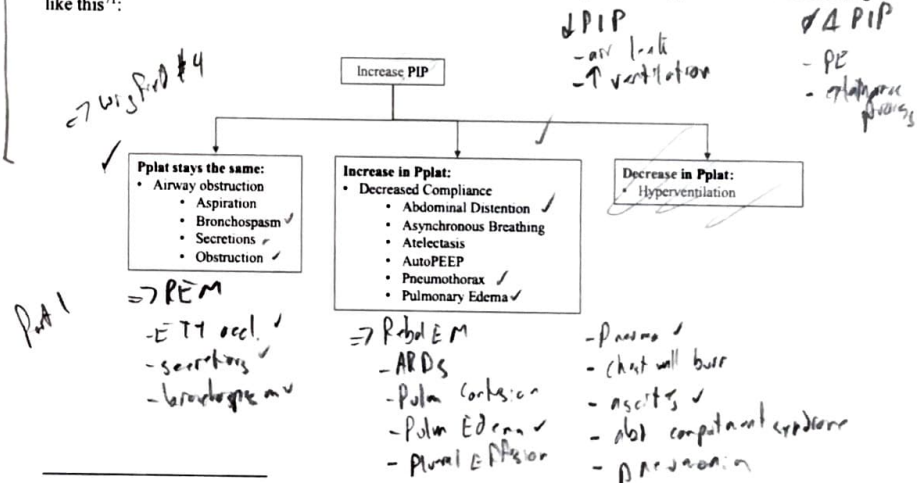 like this
↓ PIP
- air leak
- ↑ ventilation
Δ PIP
- PE
-
Increase PIP
=> #4
Pplat stays the same:
• Airway obstruction
• Aspiration
• Bronchospasm ✓
• Secretions
• Obstruction ✓
Increase in Pplat:
• Decreased Compliance
• Abdominal Distention ✓
• Asynchronous Breathing
• Atelectasis
• AutoPEEP
• Pneumothorax ✓
• Pulmonary Edema ✓
Decrease in Pplat:
• Hyperventilation
Part 1
=> REM
- ETT occl. ✓
- secretions ✓
- bronchospasm ✓
=> Rebel EM
- ARDS
- Pulm Contusion
- Pulm Edema ✓
- Plural Effusion
- Pneumo ✓
- chest wall burn
- ascites ✓
- abd compartment syndrome
- pneumonia